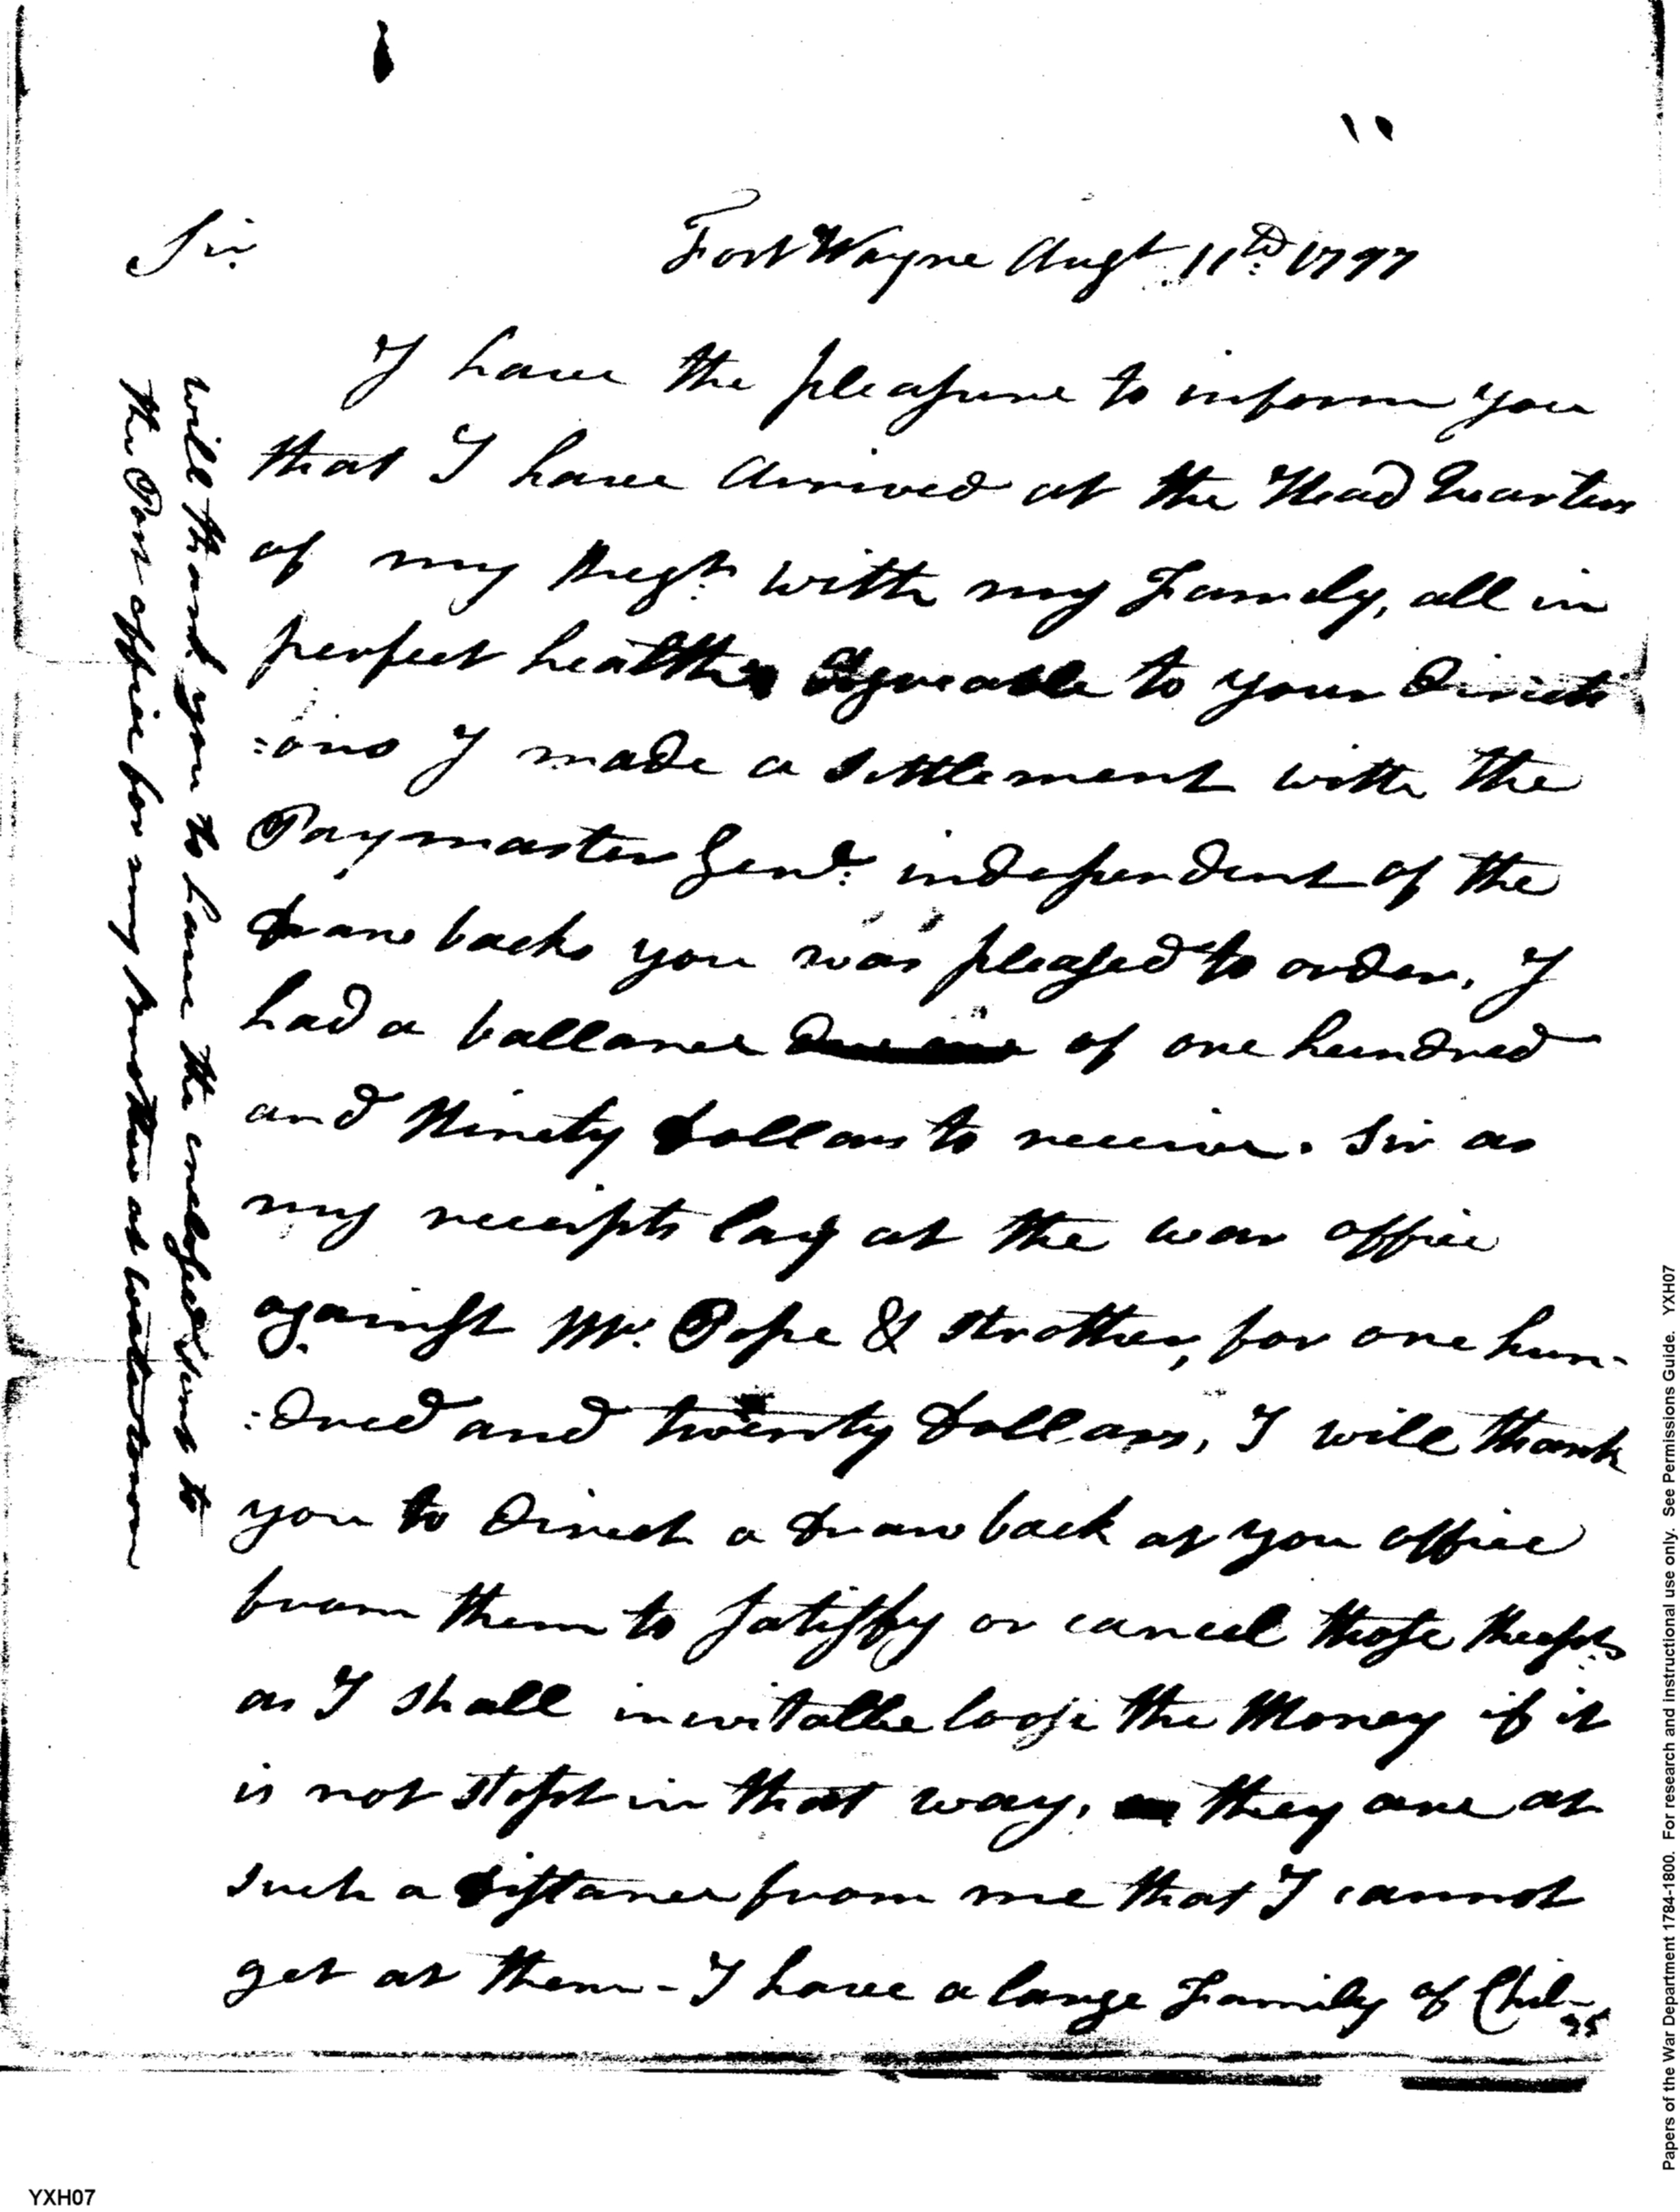 Sir.
Fort Wayne Augt. 11th. 1797
I have the pleasure to inform you
that I have arrived at the Head Quarters
of my Regt. with my Family, all in
perfect health Agreable to your Direct
:ions I made a settlement with the
Paymaster Genl. independent of the
Draw backs you was pleased to order, I
had a ballance of one hundred
and Ninety Dollars to receive. Sir as
my receipts lay at the war office
against Mr. Pope & Strother, for one hun-
:dred and twenty Dollars, I will thank
you to Direct a Draw back at you office
from them to satisfy or cancel those Recpts
as I shall inevitable loose the Money if it
is not stopt in that way, they are at
such a Distance from me that I cannot
get at them - I have a large Family of Chil-
will thank you to have the enclosed sent to
the Post office for my Brother at
Papers of the War Department 1784-1800. For research and instructional use only. See Permissions Guide. YXH07
YXH07